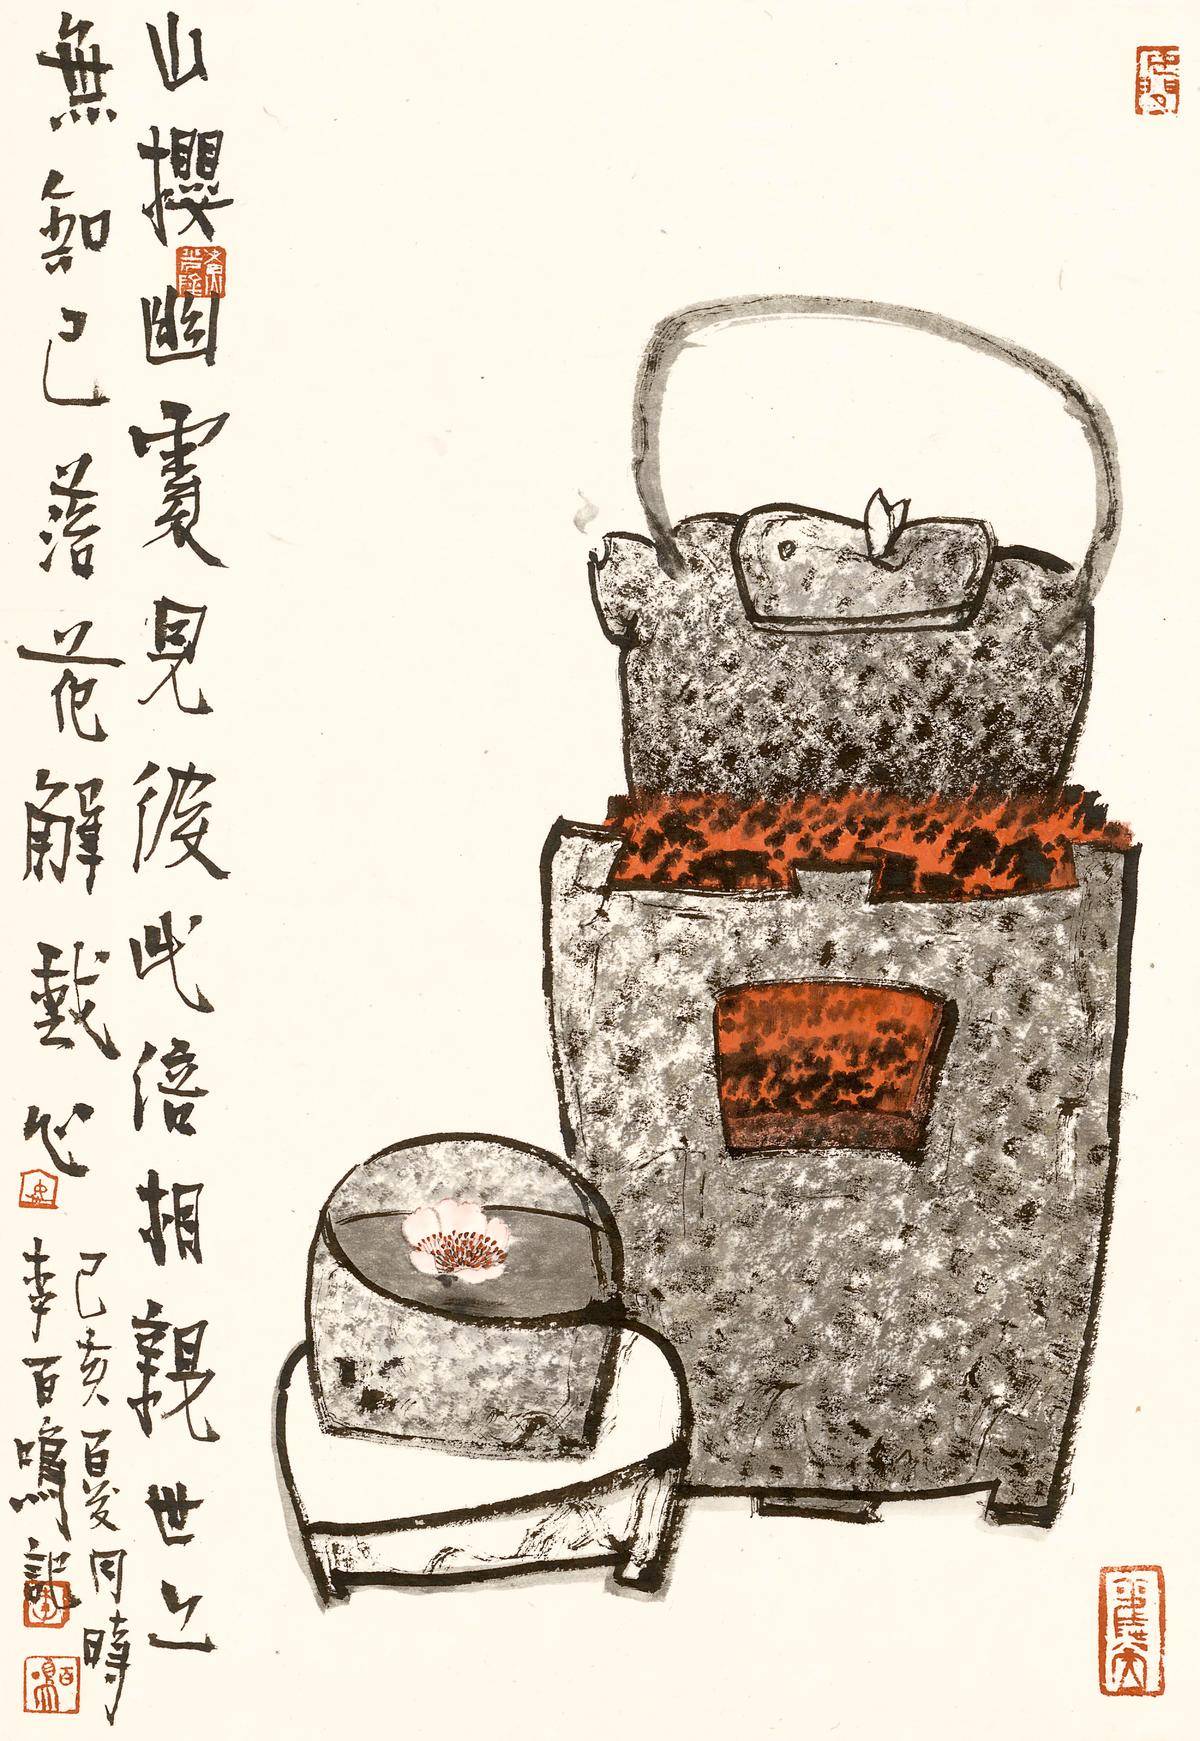 山櫻幽處見彼此倍相親世上
無知己落花解我心
己亥夏同時
李百鳴記
百鳴